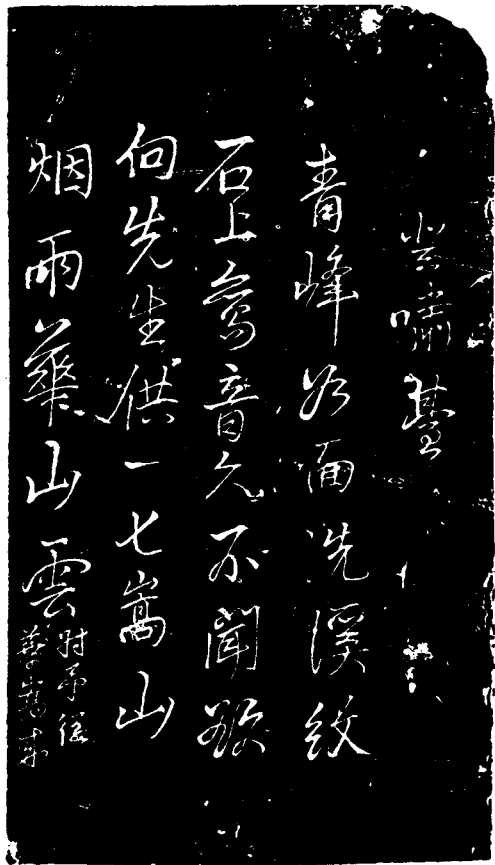 登嘯臺
青峰如面洗溪紋
石上鸞音久不聞欲
向先生供一七嵩山
烟雨華山雲
時予從
華嵩來